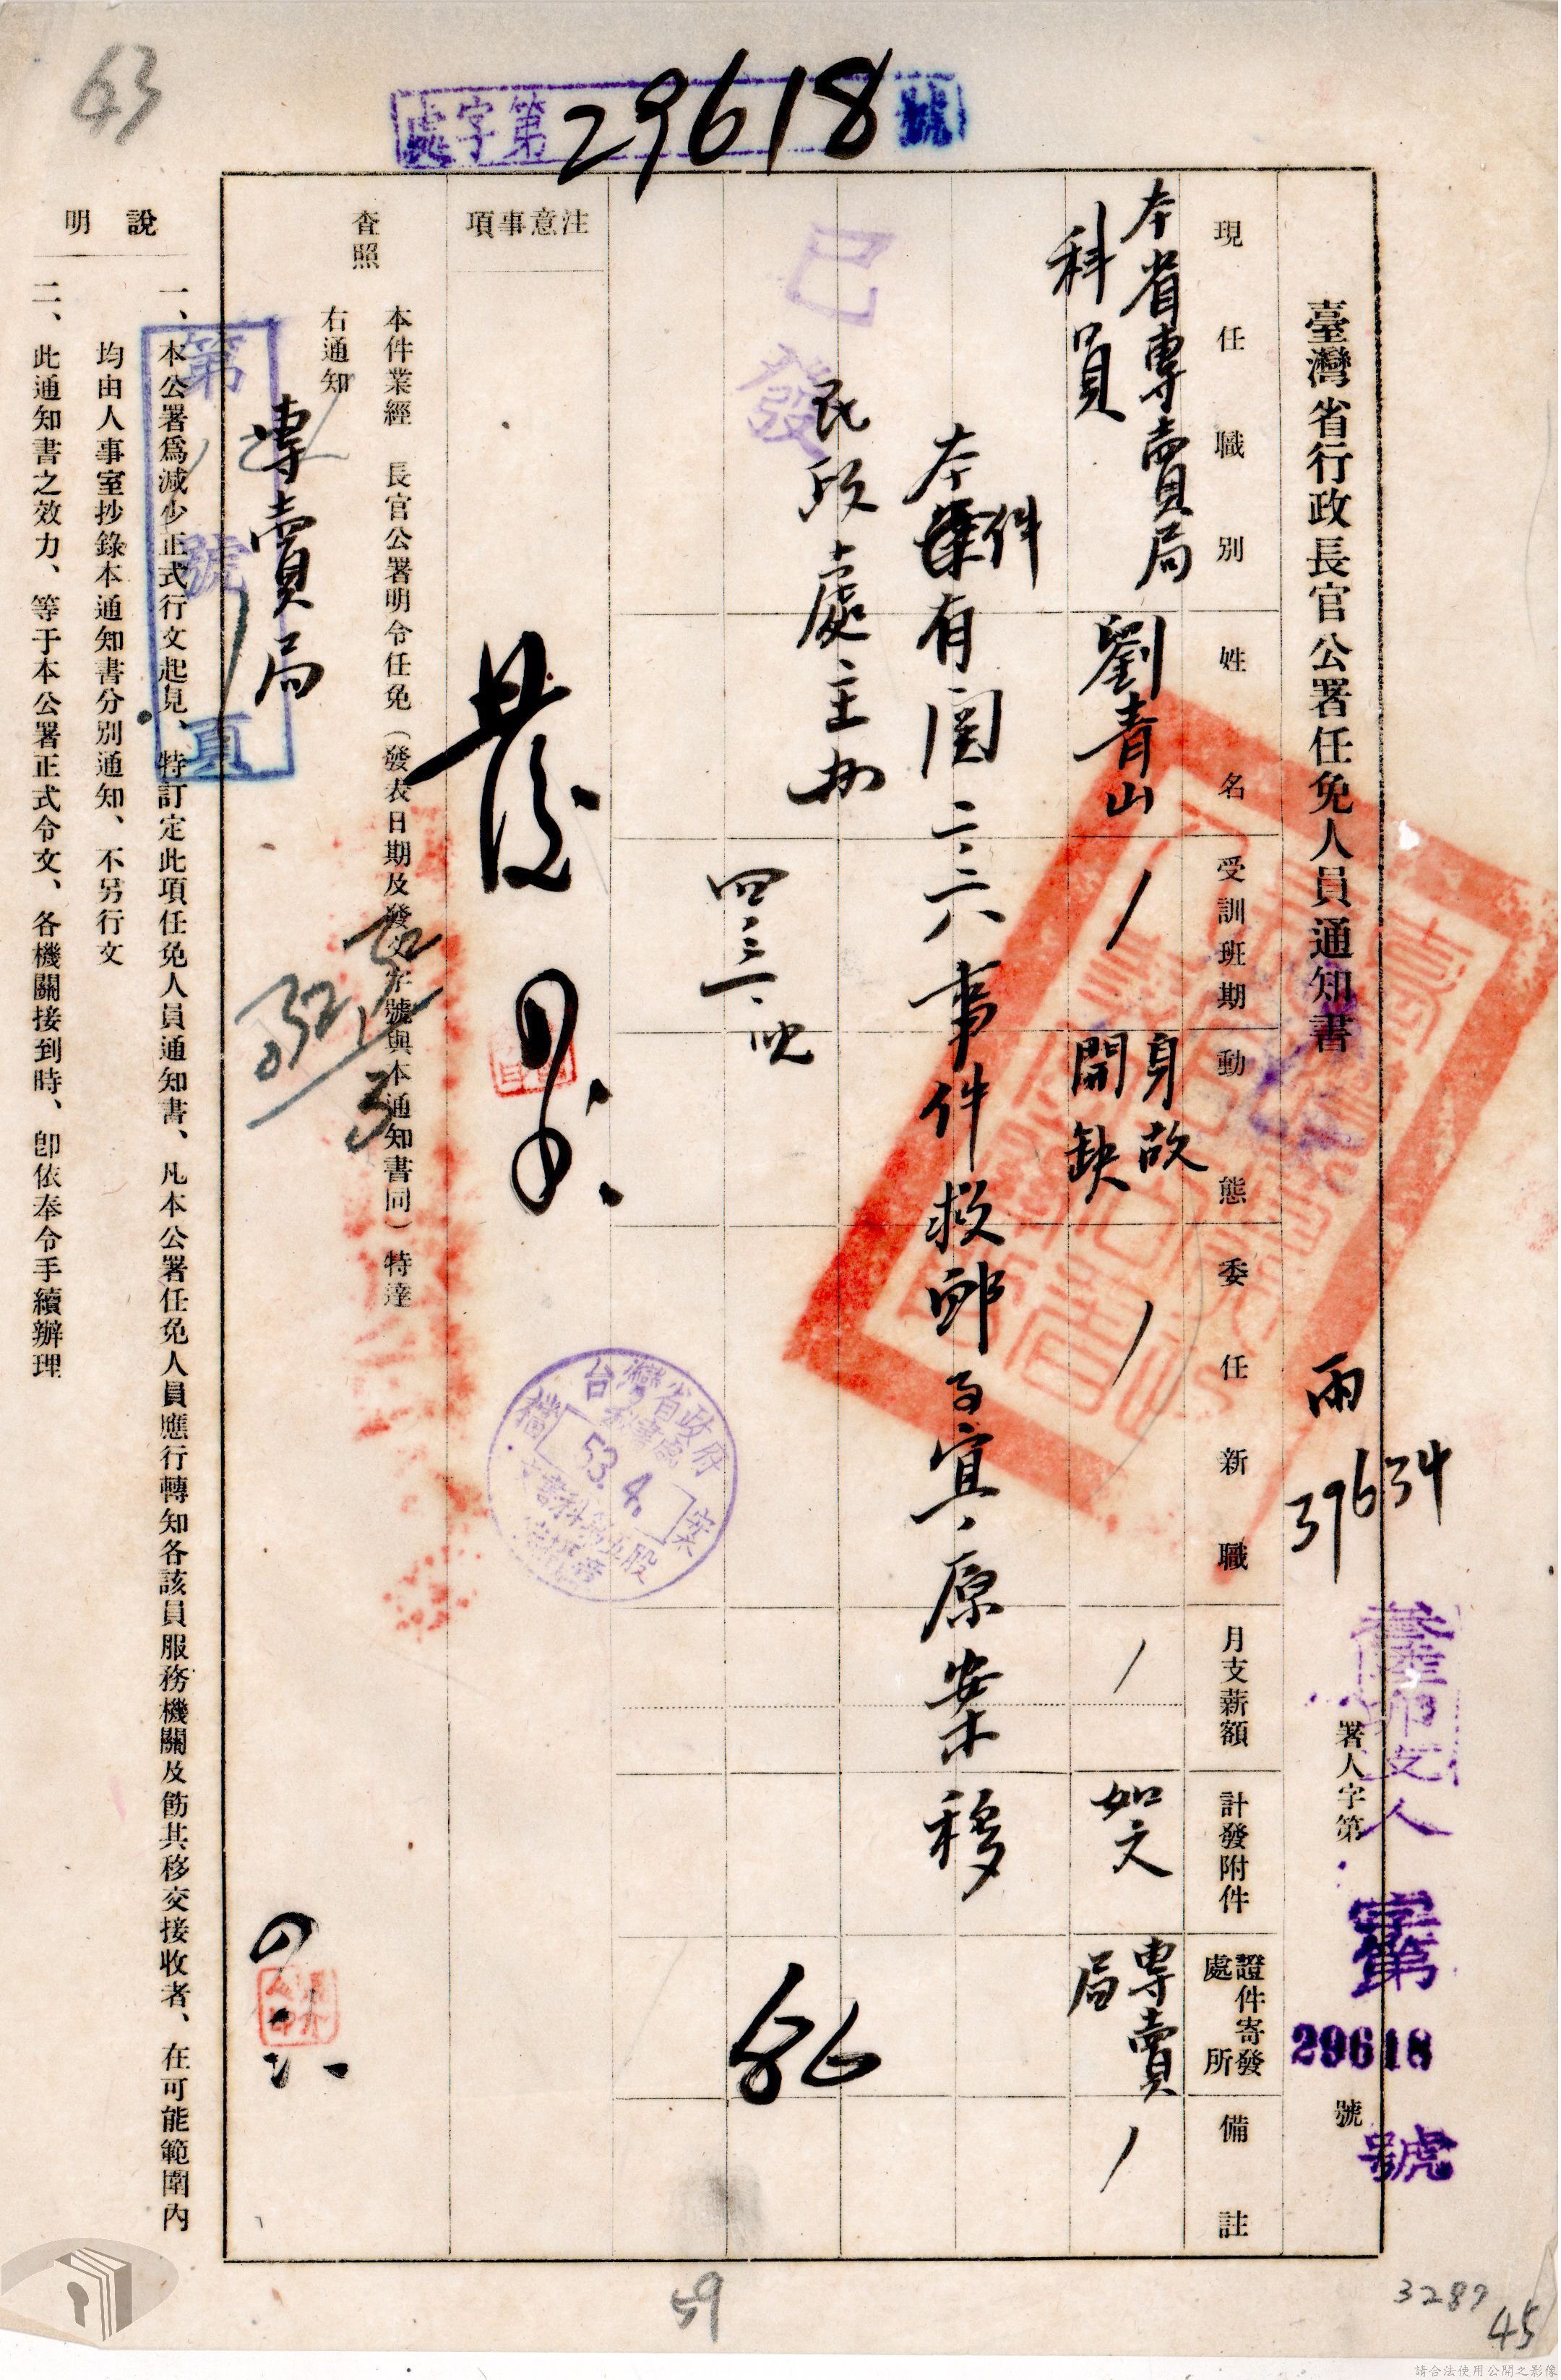 63
處字第29618號
臺灣省行政長官公署任免人員通知書
兩
39634
署人字第
29618
號
人
字第
號
現任職別
姓名
受訓班期
動態
委任新職
月支薪額
計發附件
證件寄發
處所
備註
本省專賣局
科員
劉青山
身故
開缺
如文
專賣
局
本件有関二二六事件救卹事宜、原案移
民政處主办
四、三、
已發
注意事項
本件業經 長官公署明令任免(發表日期及發文字號與本通知書同)特達
查照
右通知
專賣局
第
號
頁
台灣省政府
秘書處
檔案
53.4.
文書科第五股
說明
一、本公署爲減少正式行文起見、特訂定此項任免人員通知書、凡本公署任免人員應行轉知各該員服務機關及飭其移交接收者、在可能範圍內
均由人事室抄錄本通知書分別通知、不另行文
二、此通知書之效力、等于本公署正式令文、各機關接到時、卽依奉令手續辦理
59
3287
45
請合法使用公開之影像